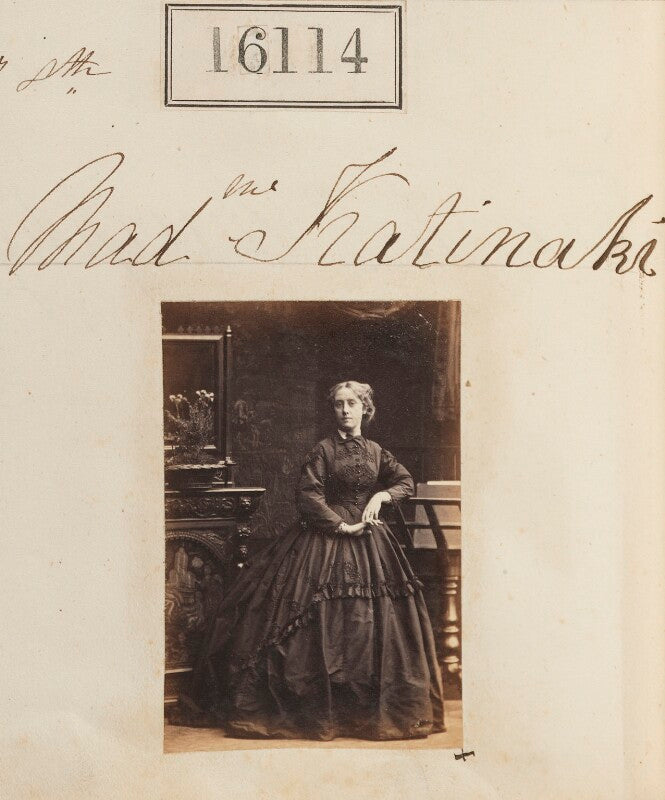 16114
Mad me Katinaki